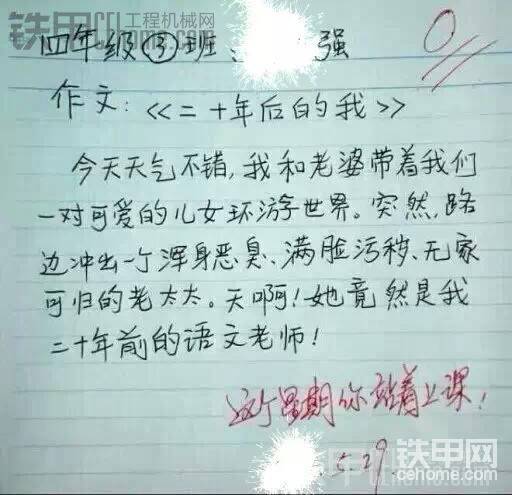 铁甲 工程机械网
cehome.com
四年级③班: 强
0
作文:《二十年后的我》
今天天气不错,我和老婆带着我们
一对可爱的儿女环游世界。突然,路
边冲出一个浑身恶臭、满脸污秽、无家
可归的老太太。天啊!她竟然是我
二十年前的语文老师!
这个星期你站着上课!
5.29.
铁甲网
cehome.com